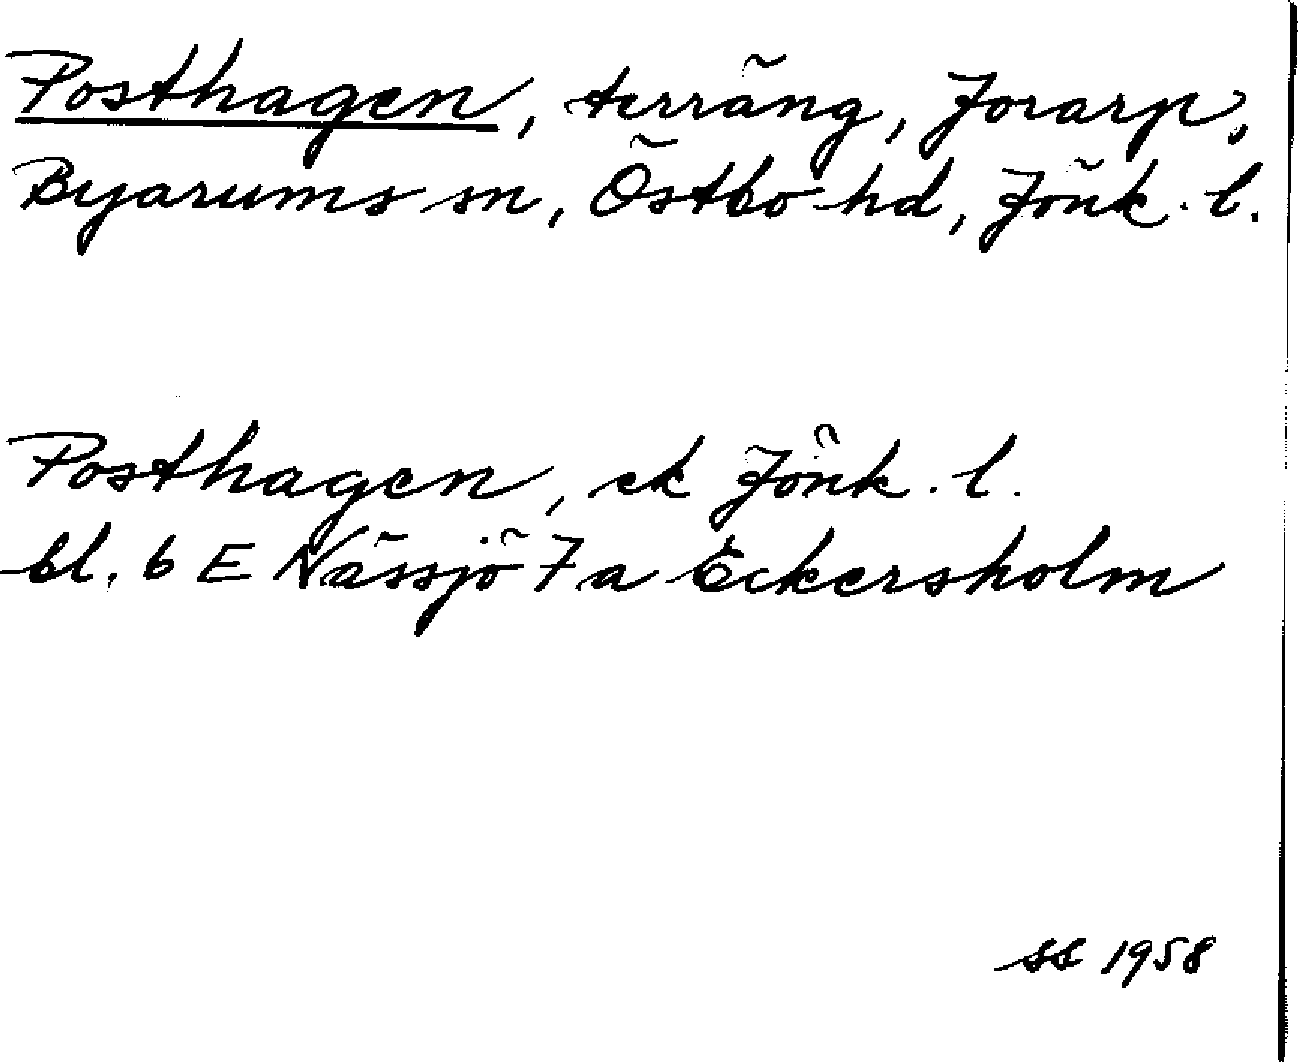 Posthagen, terräng, Jorarp,
Byarums sn, Östbo hd, Jönk. l.
Posthagen, ek Jönk. l.
bl. 6 E Nässjö 7 a Eckersholm
SS 1958